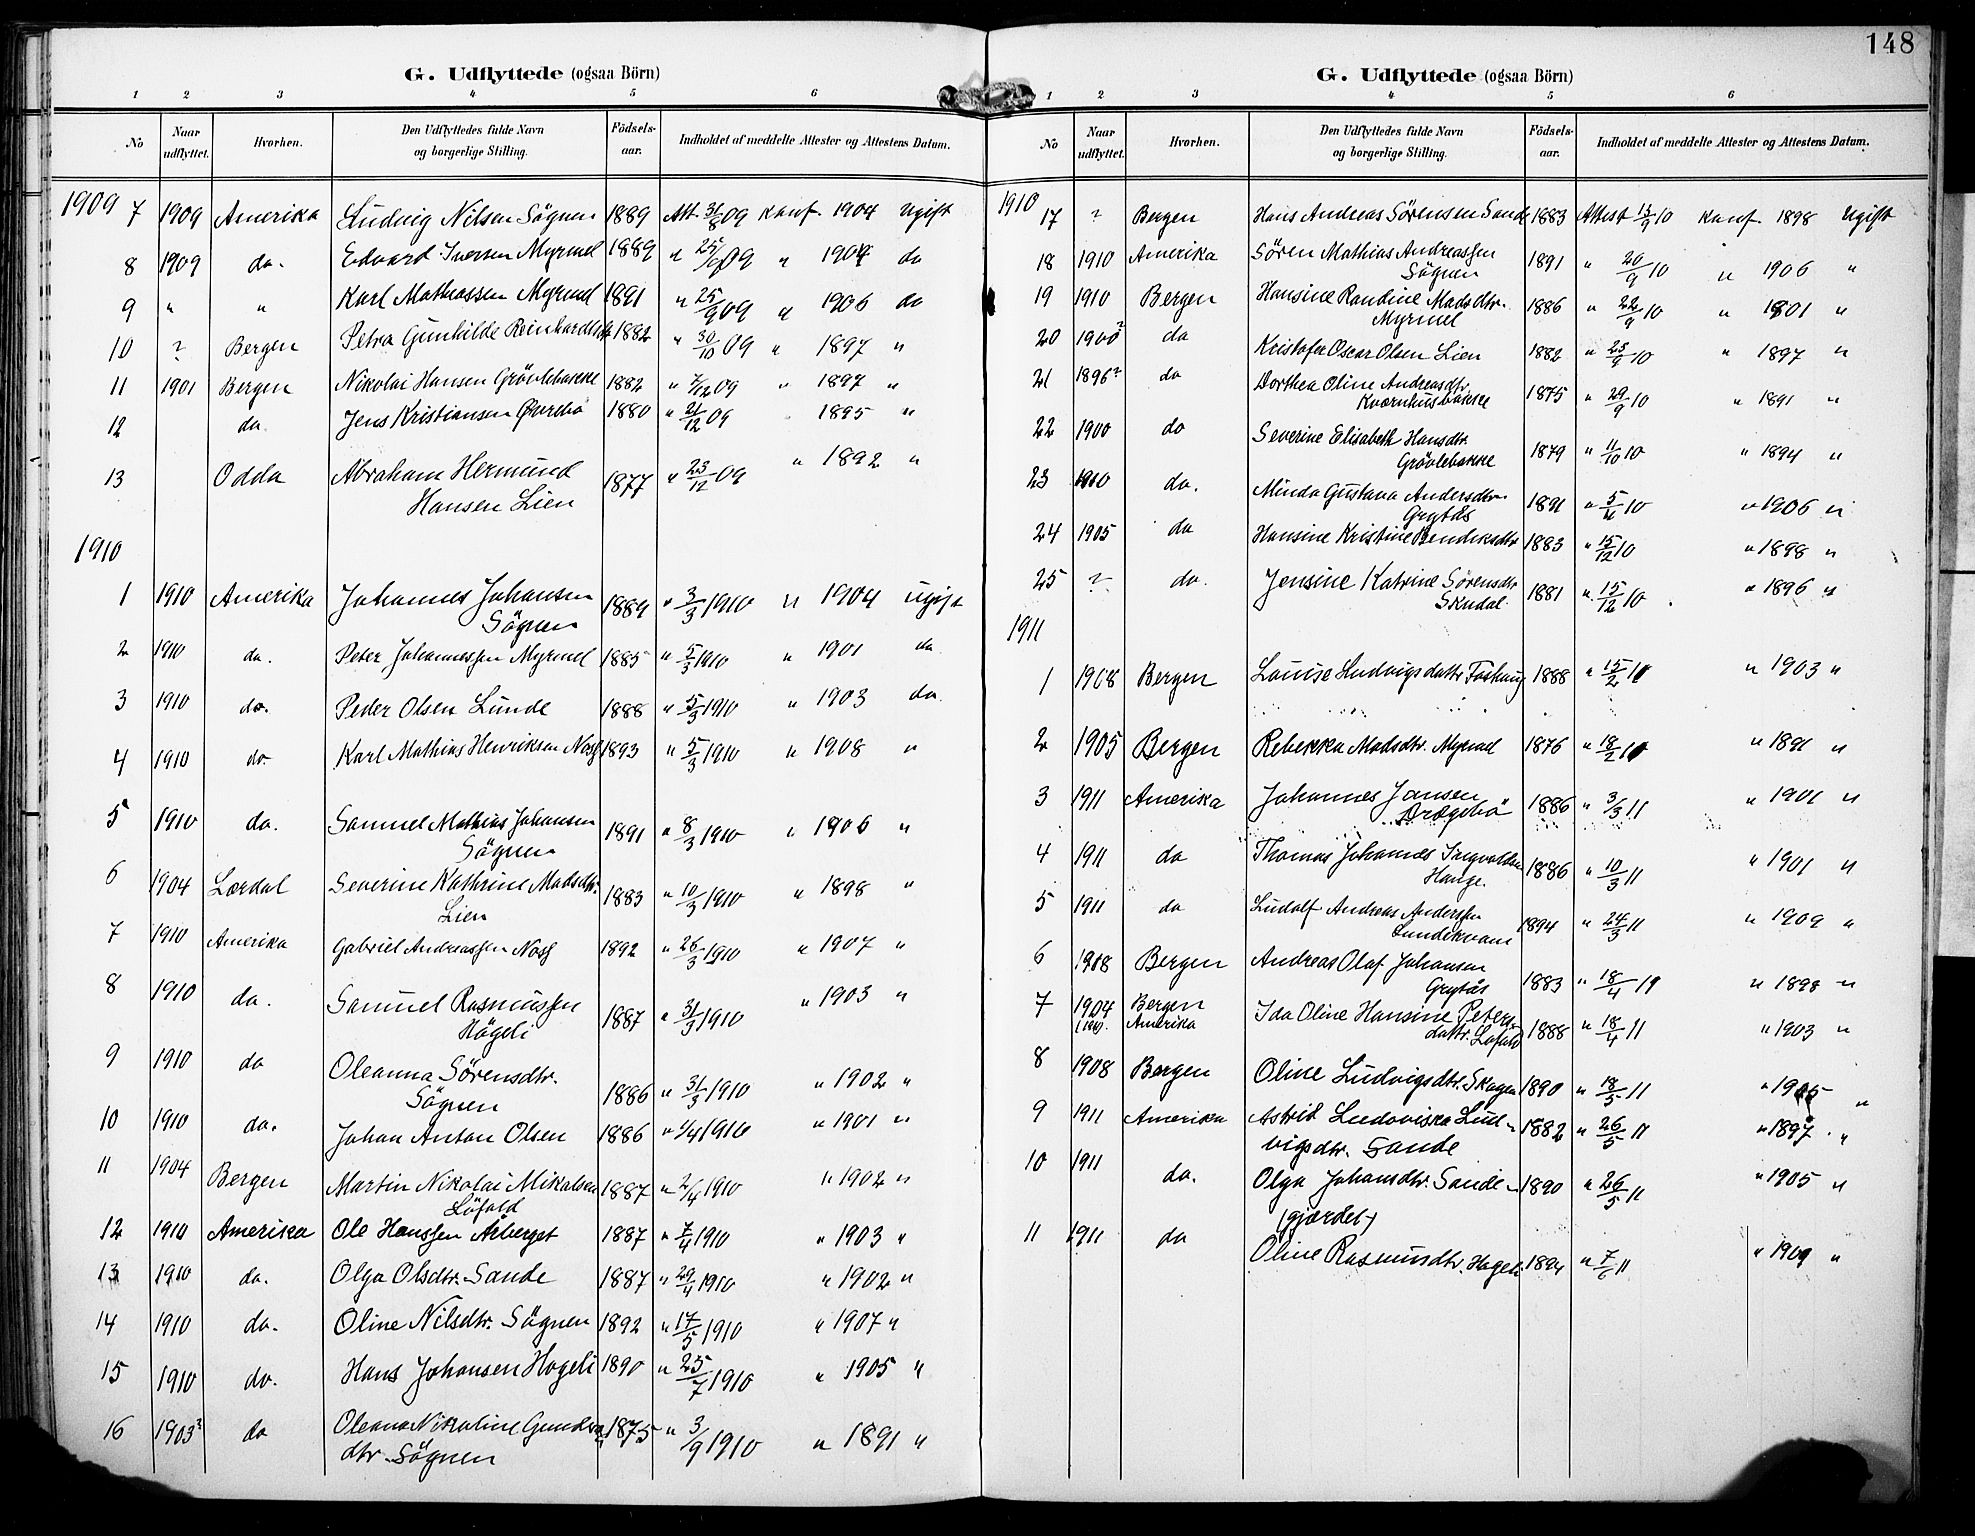 G. Udflyttede (ogsaa Börn)
1 2 3 4 5 6
No Naar udflyttet. Hvorhen. Den Udflyttedes fulde Navn og borgerlige Stilling. Födsels-aar. Indholdet af meddelte Attester og Attestens Datum.
1909 7 1909 Amerika Ludvig Nilsen Sögnen 1889 Att. 31/8 09 konf. 1904 Ugift
8 1909 do. Edvard Iversen Myrmel 1889 " 25/9 09 " 1904 do
9 " " Karl Mathiassen Myrmel 1891 " 25/9 09 " 1906 do
10 ? Bergen Petra Gunhilde Reinhardtsdtr 1882 " 30/10 09 " 1897 "
11 1901 Bergen Nikolai Hansen Grövlebakke 1882 " 7/12 09 " 1897 "
12 do Jens Kristiansen Øvrebö 1880 " 21/12 09 1895 "
13 Odda Abraham Hermund 1877 " 23/12 09 " 1892 "
Hansen Lien
1910
1 1910 Amerika Johannes Johansen 1889 " 3/3 1910 " 1904 Ugift
Sögnen
2 1910 do. Peter Johannessen Myrmel 1885 " 5/3 1910 " 1901 do
3 1910 do. Peder Olsen Lunde 1888 " 5/3 1910 " 1903 do.
4 1910 do Karl Mathias Henriksen Nos 1893 " 5/3 1910 " 1908 "
5 1910 do. Samuel Mathias Johansen 1891 " 8/3 1910 " 1906 "
Sögnen
6 1904 Lærdal Severine Kathrine Madsdtr. 1883 " 10/3 1910 " 1898 "
Lien
7 1910 Amerika Gabriel Andreassen Noss 1892 " 26/3 1910 " 1907 "
8 1910 do. Samuel Rasmussen 1887 " 31/3 1910 " 1903 "
Högeli
9 1910 do Oleanna Sörensdtr. 1886 " 31/3 1910 " 1902 "
Sögnen
10 1910 do. Johan Anton Olsen 1886 " 1/4 1910 " 1901 "
11 1904 Bergen Martin Nikolai Mikalsen 1887 " 2/4 1910 " 1902 "
Löfald
12 1910 Amerika Ole Hanssen Årberget 1887 " 7/4 1910 " 1903 "
13 1910 do. Olga Olsdtr. Sande 1887 " 29/4 1910 " 1902 "
14 1910 do. Oline Nilsdtr. Sögnen 1892 " 17/5 1910 " 1907 "
15 1910 do. Hans Johansen Hogeli 1890 " 25/7 1910 " 1905 "
16 1903? do Oleana Nikoline Gunders- 1875 " 3/9 1910 " 1891 "
dtr. Sögnen
148
G. Udflyttede (ogsaa Börn)
1 2 3 4 5 6
No Naar udflyttet. Hvorhen. Den Udflyttedes fulde Navn og borgerlige Stilling. Födsels-aar. Indholdet af meddelte Attester og Attestens Datum.
1910
17 ? Bergen Hans Andreas Sörensen Sande 1883 Attest 13/9 10 konf. 1898 Ugift
18 1910 Amerika Sören Mathias Andreassen 1891 " 20/9 10 " 1906 "
Sögnen
19 1910 Bergen Hansine Randine Madsdtr. 1886 " 22/9 10 " 1901 "
Myrmel
20 1900? do Kristofer Oscar Olsen Lien 1882 " 23/9 10 " 1897 "
21 1896? do Dorthea Oline Andreasdtr. 1875 " 29/9 10 " 1891 "
Kværnhusbakke
22 1900 do Severine Elisabeth Hansdtr. 1879 " 11/10 10 " 1894 "
Grövlebakke
23 1910 do. Minda Gustava Andersdtr. 1891 " 5/11 10 " 1906 "
Grytås
24 1905 do Hansine Kristine Bendiksdtr 1883 " 15/12 10 " 1898 "
25 ? do. Jensine Katrine Sörensdtr 1881 " 15/12 10 " 1896 "
Skudal
1911
1 1908 Bergen Louise Ludvigsdattr Foshaug 1888 " 15/2 11 " 1903 "
2 1905 Bergen Rebekka Madsdtr. Myrmel 1876 " 18/2 11 " 1891 "
3 1911 Amerika Johannes Jansen 1886 " 3/3 11 " 1901 "
Drægebö
4 1911 do Thomas Johannes Ingvaldsen 1886 " 10/3 11 " 1901 "
Hauge.
5 1911 do Ludolf Andreas Anderssen 1894 " 24/3 11 " 1909 "
Lundekvam
6 1908 Bergen Andreas Olaf Johansen 1883 " 18/4 11 " 1898 "
Grytås
7 1904 Bergen Ida Oline Hansine Peters- 1888 " 18/4 11 " 1903 "
Amerika dattr. Løfald
8 1908 Bergen Oline Ludvigsdtr. Skagen 1890 " 18/5 11 " 1905 "
9 1911 Amerika Astrid Ludoviska Lud- 1882 " 26/5 11 " 1897 "
vigsdtr. Sande
10 1911 do. Olga Johansdtr. Sande- 1890 " 26/5 11 " 1905 "
(gjærdet)
11 1911 do Oline Rasmusdtr. Hogeli 1894 " 7/6 11 " 1909 "